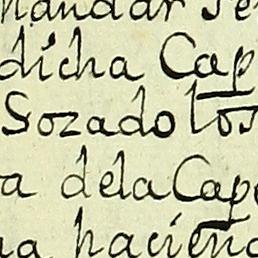 mandar se
dicha Cap
Sozado los
a dela Cape
na hacien